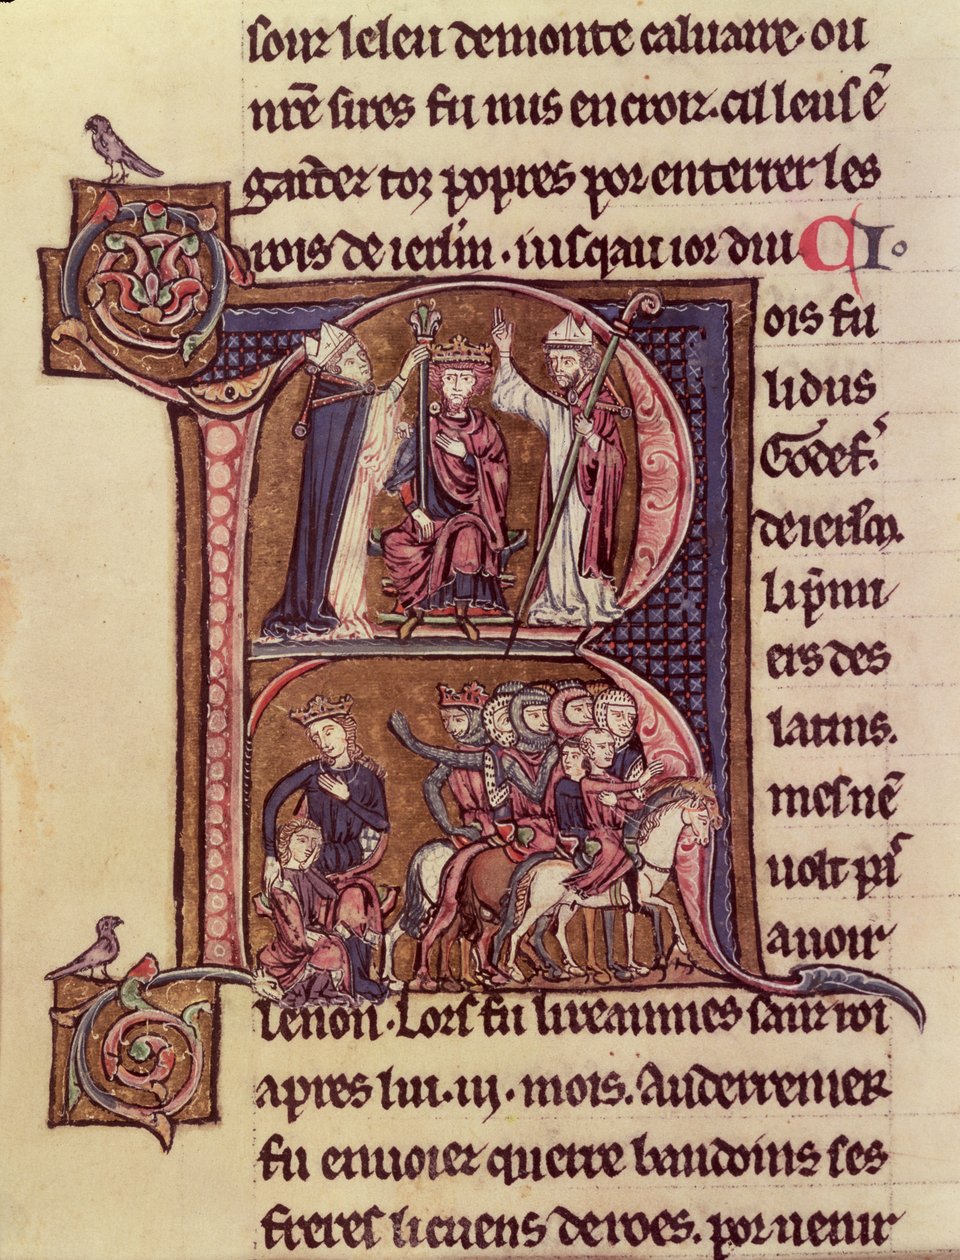 souz leleu demonte caluaire. ou
nr̄e sires fu mis encroiz. cil leus ē
gardez toz propres por enterrer les
rois de ierl'm . iusqau ior dui CI°
Rois fu
lidus
Godef'.
de ierl'm.
li p̄mi
ers des
latins.
mes nē
uolt pas
auoir
lenon . Lors fu lireaumes sanz roi
apres lui . iij . mois . Auderrenier
fu enuoiez querre baudoins ses
freres licuens deroes . por uenir